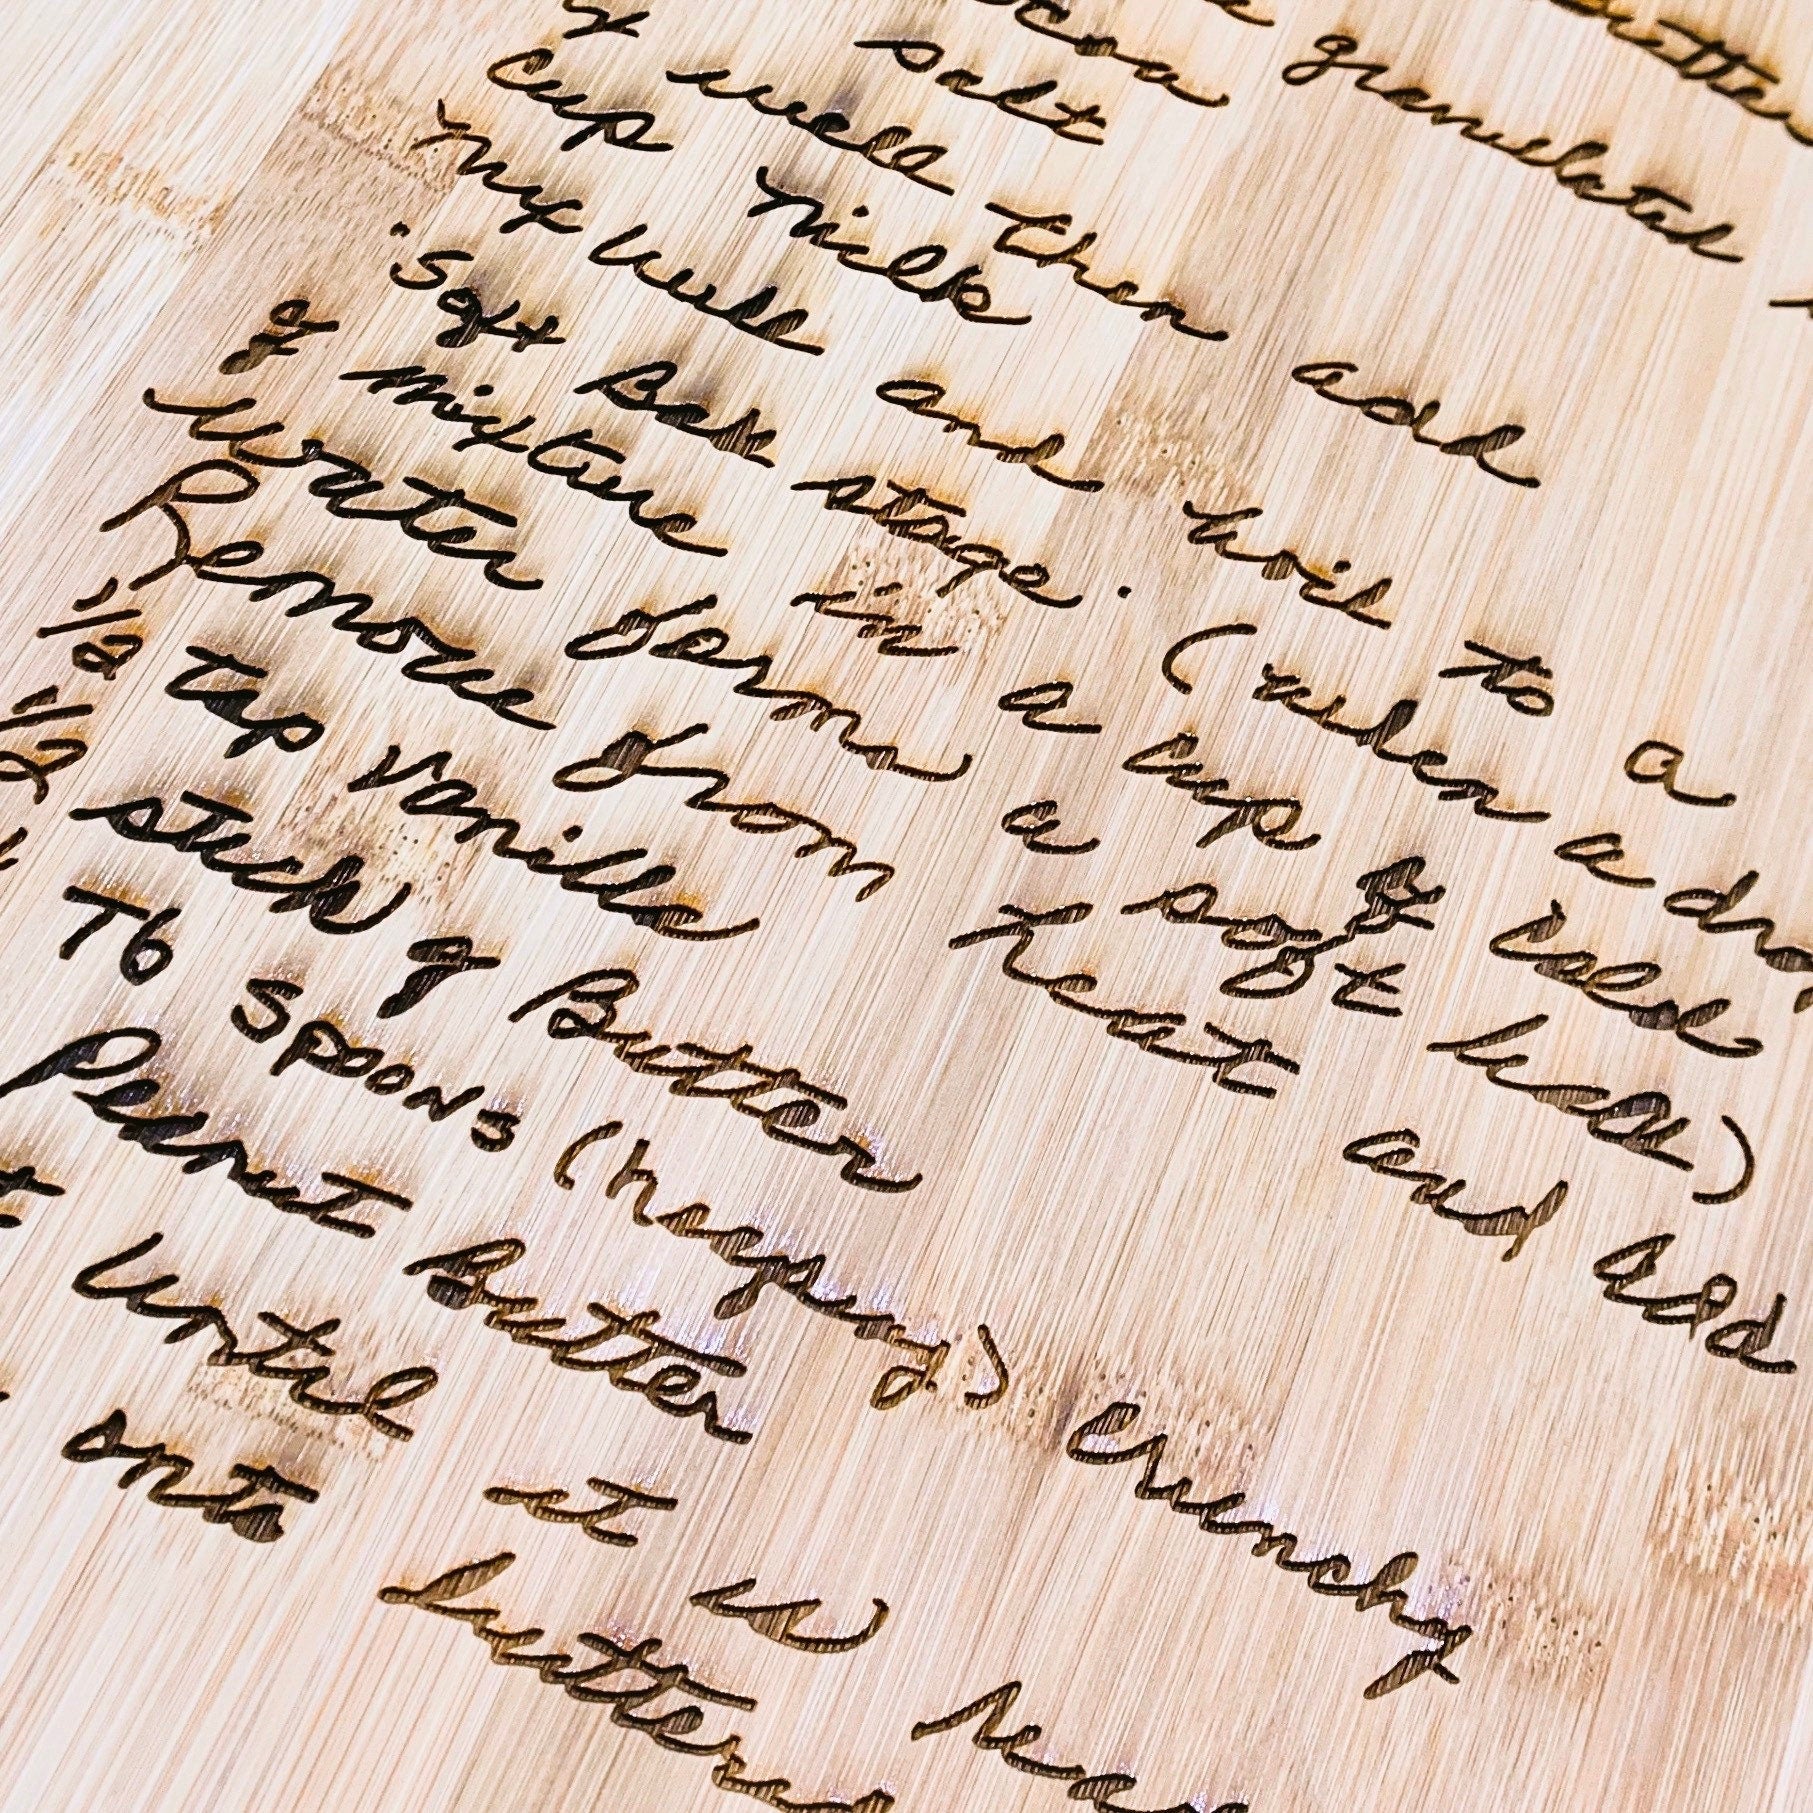 butter
granulated
salt
well then add
Cup milk
Mix well and boil to a
"Soft Ball stage. (when a
of mixture in a cup of cold
water forms a soft ball)
Remove from heat and add
1/2 tsp vanilla
1/2 stick of Butter
Tb SPOONS (heaping) crunchy
Peanut Butter
until it is
onto buttered